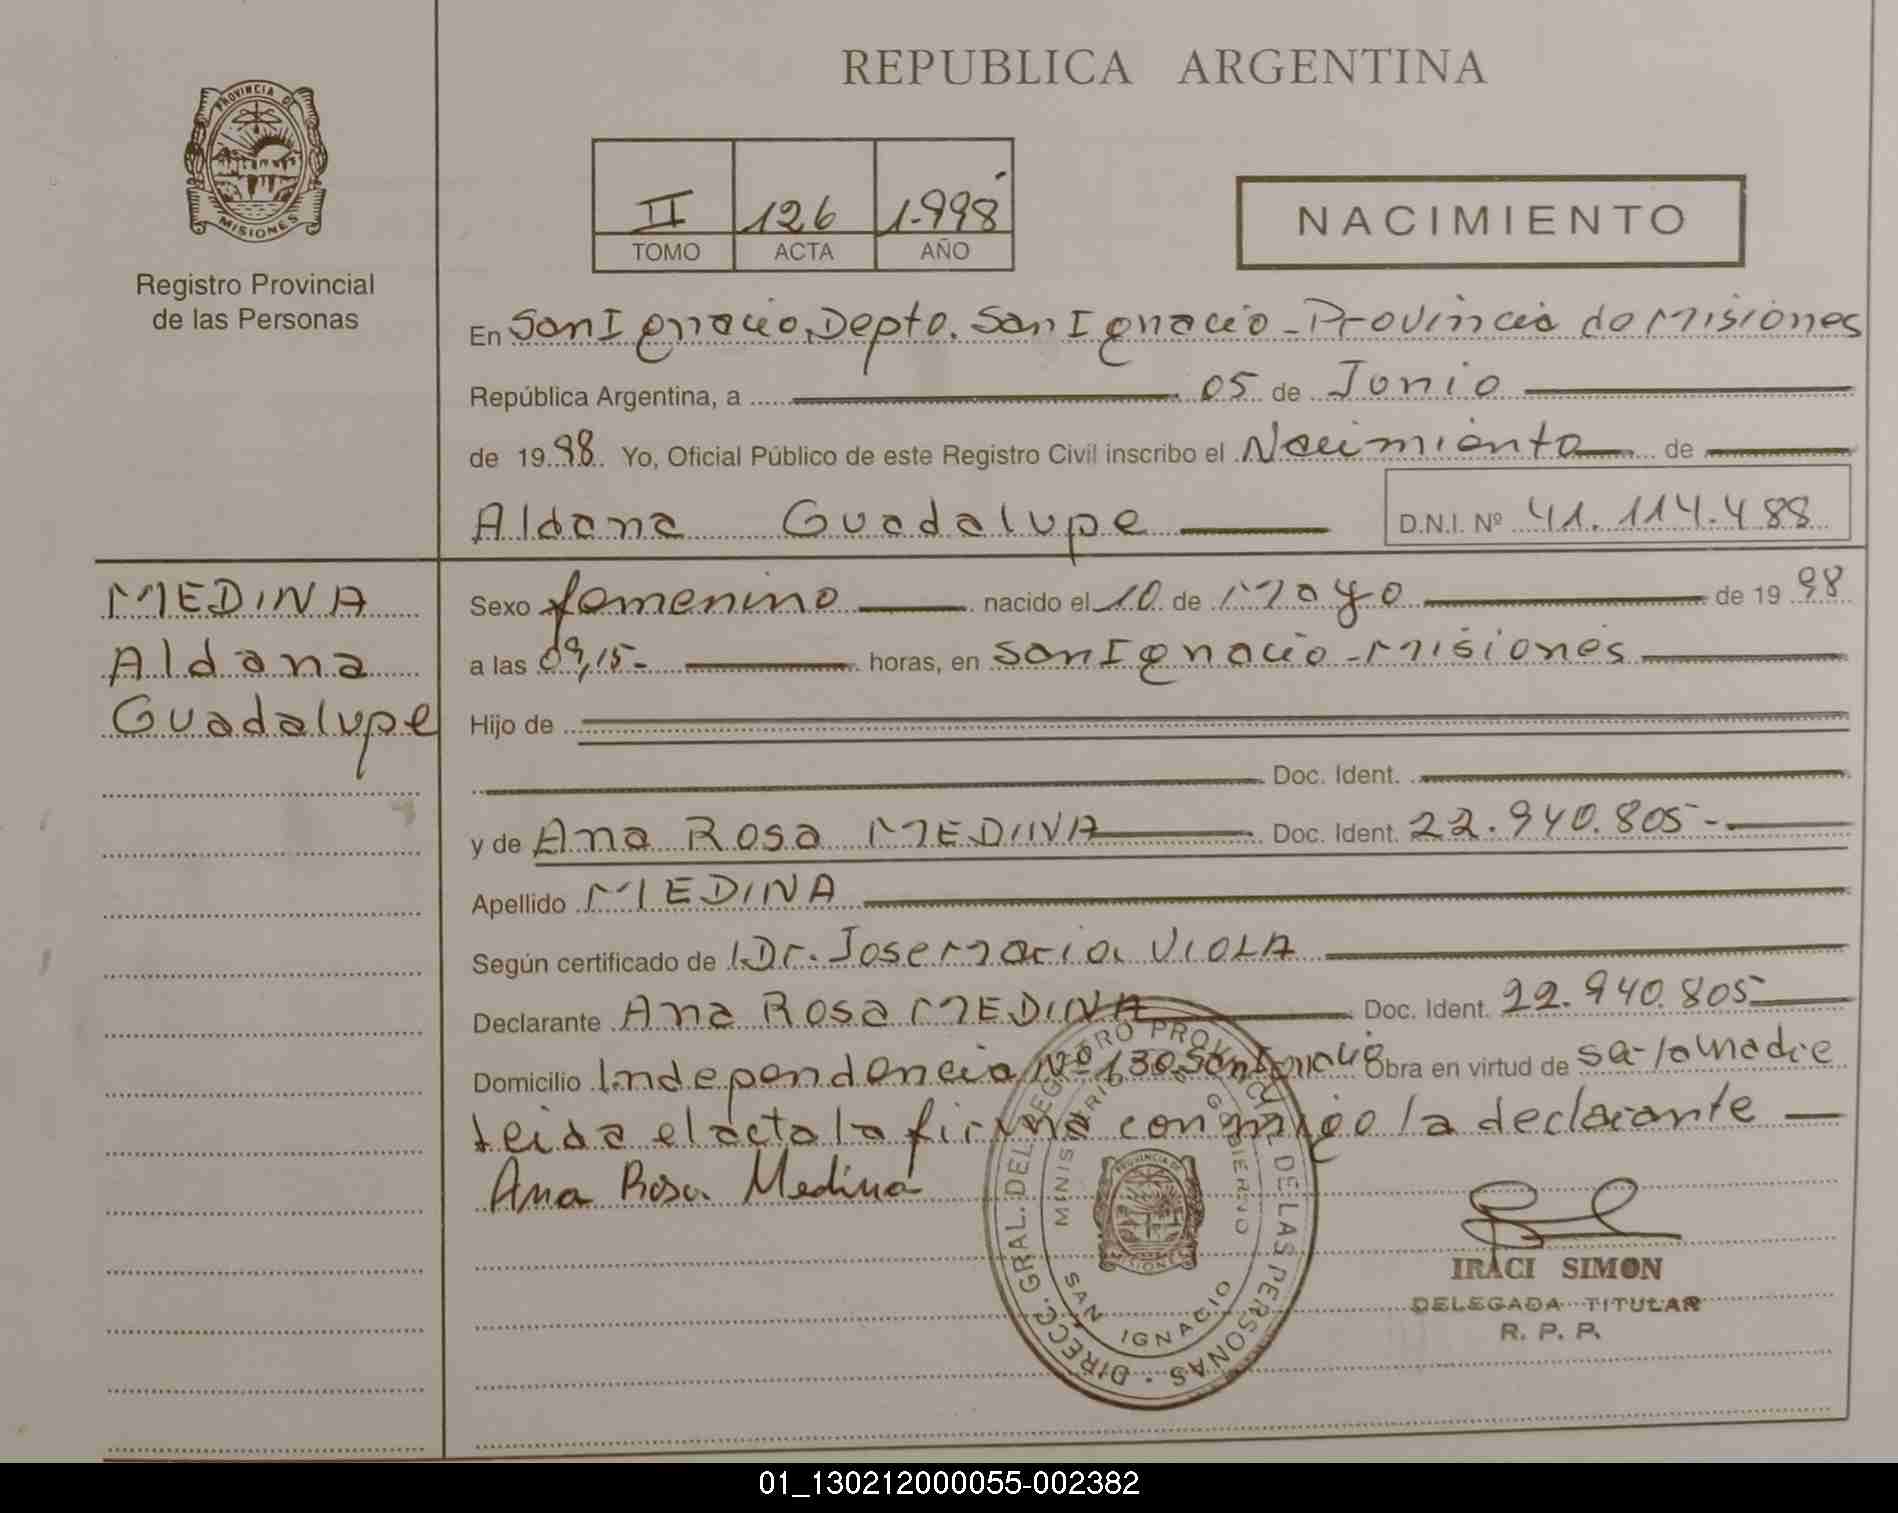 REPUBLICA ARGENTINA
PROVINCIA DE
MISIONES
Registro Provincial
de las Personas
II 126 1.998
TOMO ACTA AÑO
NACIMIENTO
En San Ignacio, Depto. San Ignacio - Provincia de Misiones
República Argentina, a 05 de Junio
de 1998 Yo, Oficial Público de este Registro Civil inscribo el Nacimiento de
Aldana Guadalupe D.N.I. Nº 41.114.488
MEDINA
Aldana
Guadalupe
Sexo femenino nacido el 10 de Mayo de 1998
a las 09,15- horas, en San Ignacio - Misiones
Hijo de
Doc. Ident.
y de Ana Rosa MEDINA Doc. Ident. 22.940.805-
Apellido MEDINA
Según certificado de Dr. Jose Maria VIOLA
Declarante Ana Rosa MEDINA Doc. Ident. 22.940.805
Domicilio Independencia Nº 130 San Ignacio Obra en virtud de se- la madre
Leida el acta la firma conmigo la declarante
Ana Rosa Medina
DIRECC. GRAL. DEL REGISTRO PROVINCIAL DE LAS PERSONAS
MINISTERIO DE GOBIERNO
PROVINCIA DE
MISIONES
SAN IGNACIO
IRACI SIMON
DELEGADA TITULAR
R. P. P.
01_130212000055-002382